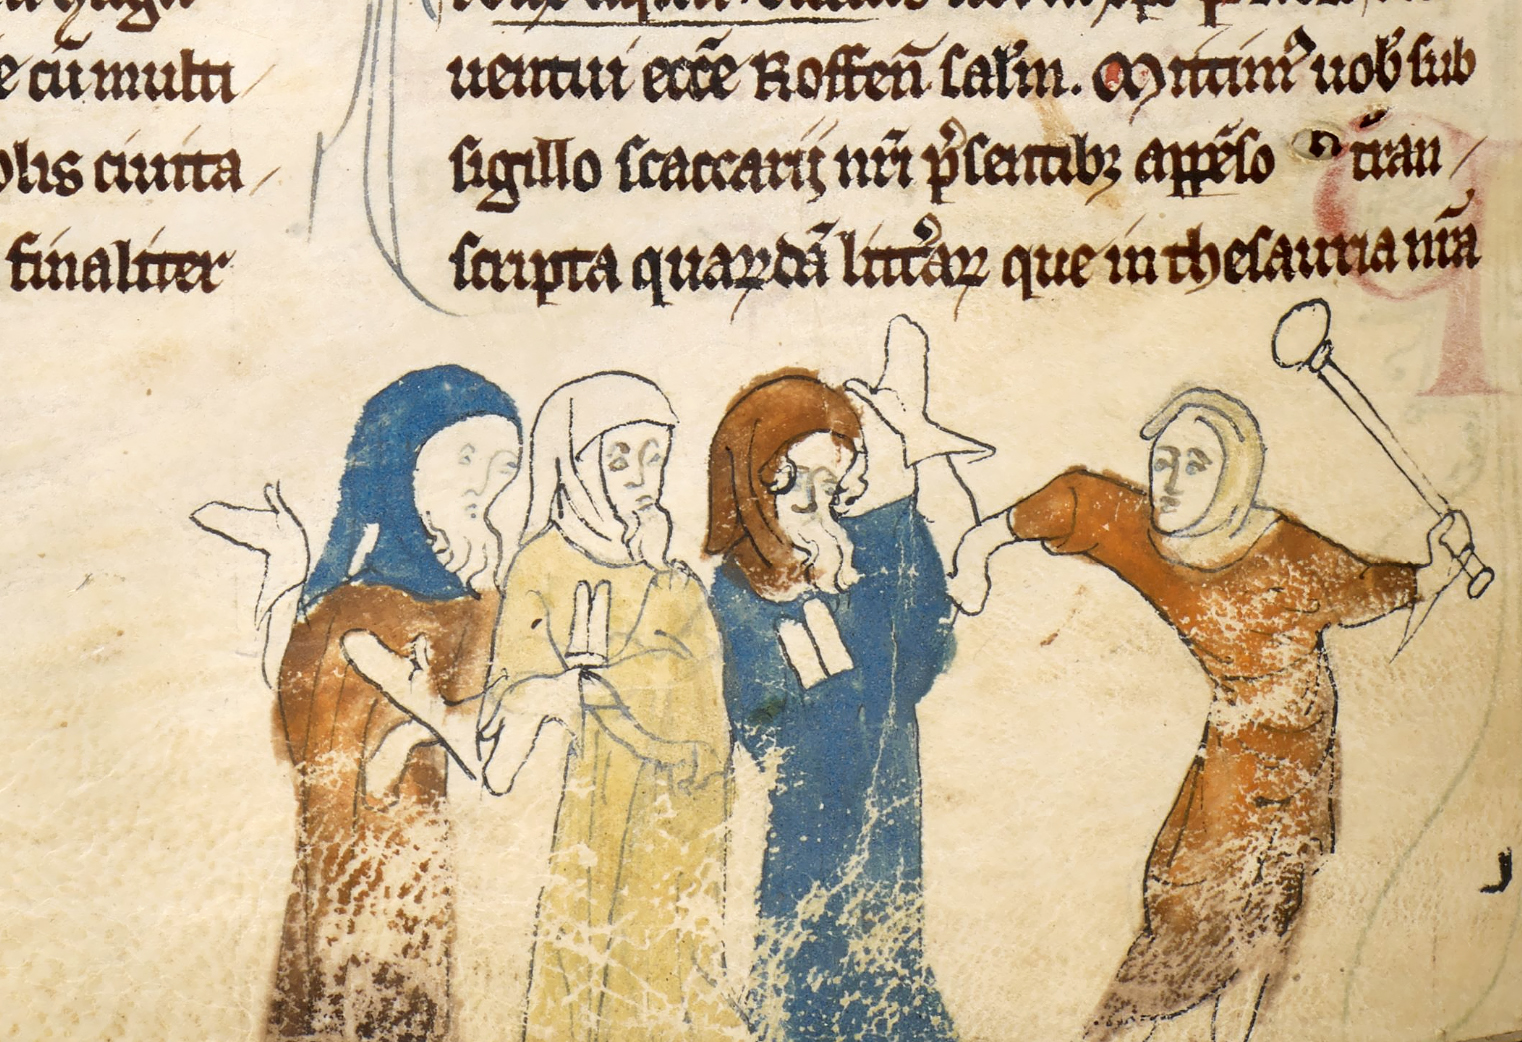 e cū multi
olis ciuita
finaliter
uentui ecc̄e Roffen̄ sal̄m. Mittim᷒ uob̄ sub
sigillo scaccarij nr̄i p̄sentibꝫ app̄eso tran
scripta quaꝝdā litt̄aꝝ que in thesauria nr̄a